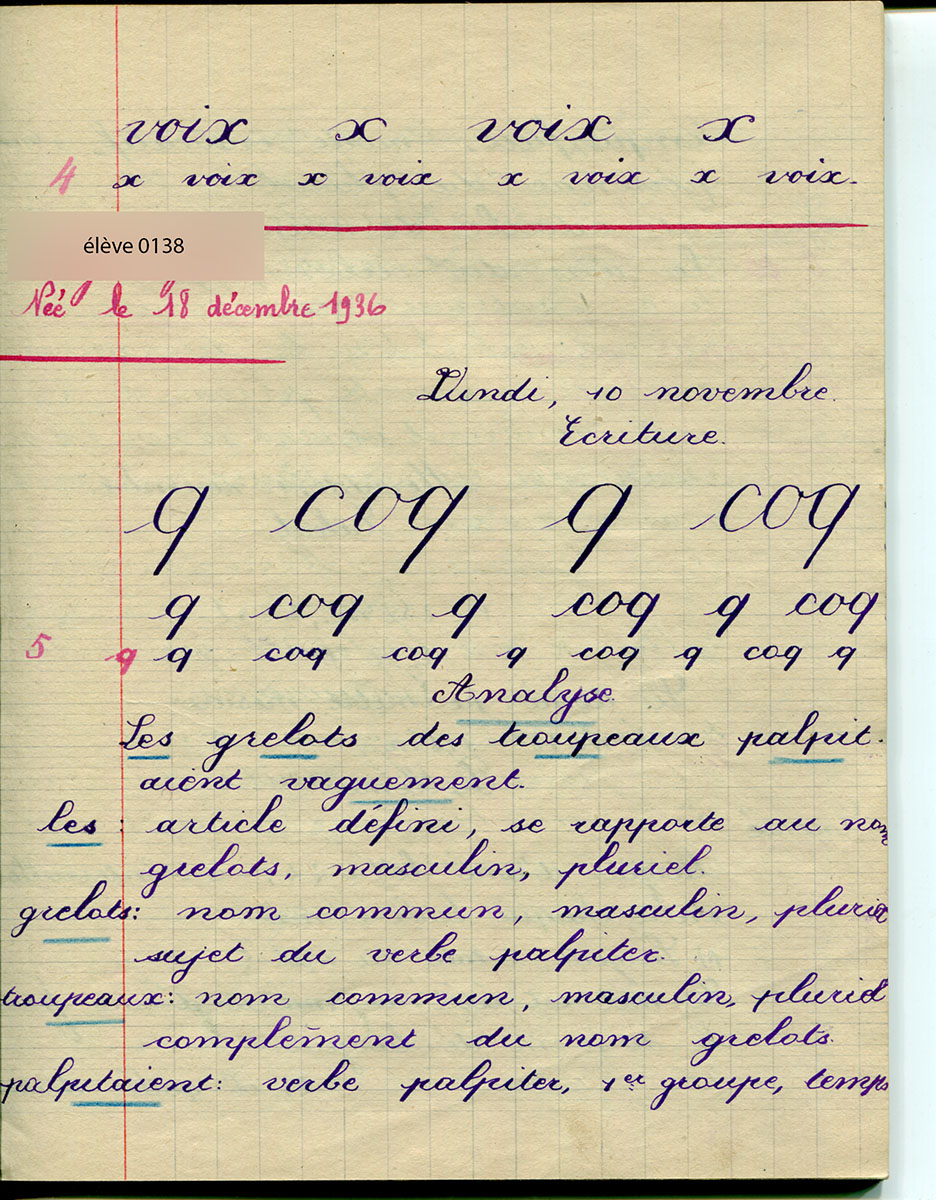 voix x voix x
4 x voix x voix x voix x voix.
élève 0138
Née le 18 décembre 1936
Lundi, 10 novembre.
Ecriture.
q coq q coq
q coq q coq q coq
5 q q coq coq q coq q coq q
Analyse.
Les grelots des troupeaux palpit-
aient vaguement.
les : article défini, se rapporte au nom
grelots, masculin, pluriel.
grelots: nom commun, masculin, pluriel
sujet du verbe palpiter.
troupeaux: nom commun, masculin, pluriel
complément du nom grelots.
palpitaient: verbe palpiter, 1er groupe, temps